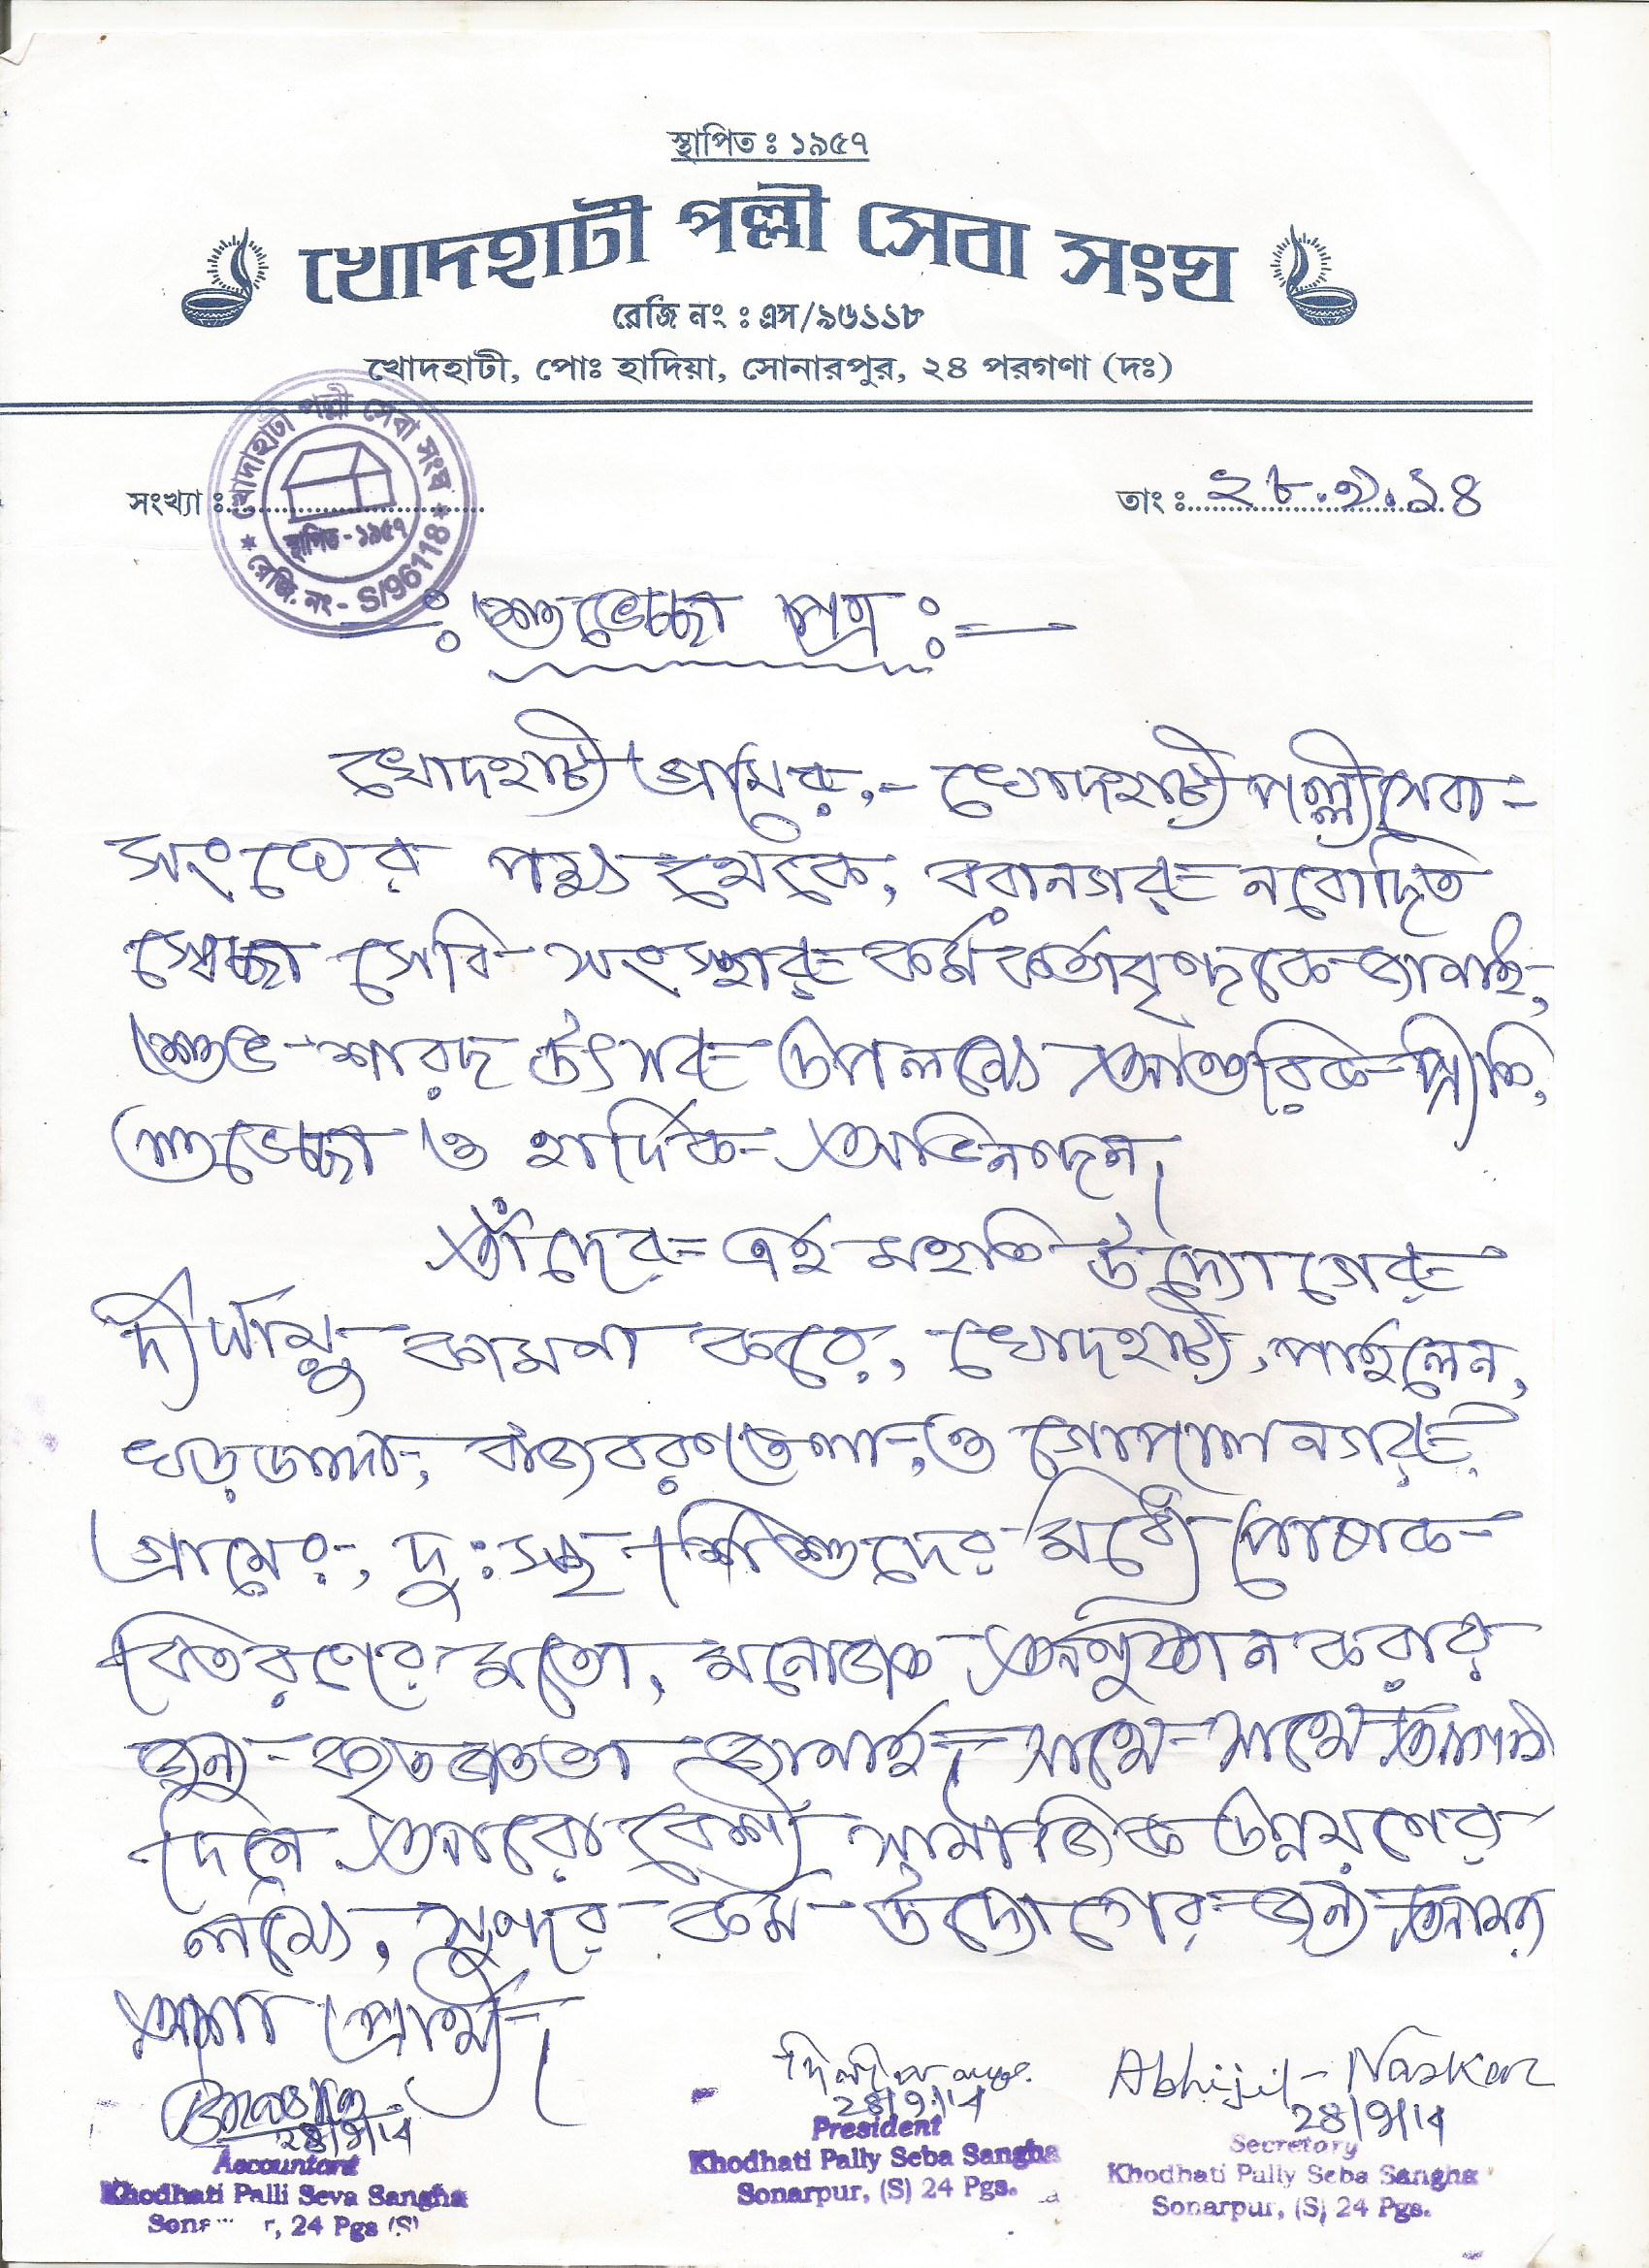 স্থাপিত : ১৯৫৭
খোদহাটী পল্লী সেবা সংঘ
রেজি নং : এস/৯৬১১৮
খোদহাটী, পোঃ হাদিয়া, সোনারপুর, ২৪ পরগণা (দঃ)
খোদাহাটী পল্লী সেবা সংঘ
স্থাপিত - ১৯৫৭
রেজি. নং - S/96118
সংখ্যা :
তাং : ২৮.৯.১৪
—: শুভেচ্ছা পত্র :—
খোদহাটী গ্রামের,- খোদহাটী পল্লীসেবা-
সংঘের পক্ষ থেকে, বরানগর নবোদিত
স্বেচ্ছা সেবি সংস্থার কর্মকর্তাবৃন্দকে জানাই,
শুভ শারদ উৎসব উপলক্ষ্যে আন্তরিক প্রীতি,
শুভেচ্ছা ও হার্দিক অভিনন্দন।
তাঁদের এই মহতি উদ্যোগের
দীর্ঘায়ু কামনা করে, খোদহাটী, পাইলেন,
খড়ডাঙ্গা, বাজবরণতলা, ও গোপালনগর
গ্রামের, দুঃস্থ শিশুদের মধ্যে পোষাক
বিতরণের মতো, মনোজ্ঞ অনুষ্ঠান করার
জন্য কৃতজ্ঞতা জানাই। সাথে সাথে আগামী
দিনে আরো বেশী সামাজিক উন্নয়ণের
লক্ষ্যে, সুন্দর কর্ম উদ্যোগের জন্য আমরা
আশা প্রার্থী।
28/9/14
Accountant
Khodhati Palli Seva Sangha
24 Pgs (S)
দিলীপ
28/9/14
President
Khodhati Pally Seba Sangha
Sonarpur, (S) 24 Pgs.
Abhijit Naskar
28/9/14
Secretary
Khodhati Pally Seba Sangha
Sonarpur, (S) 24 Pgs.